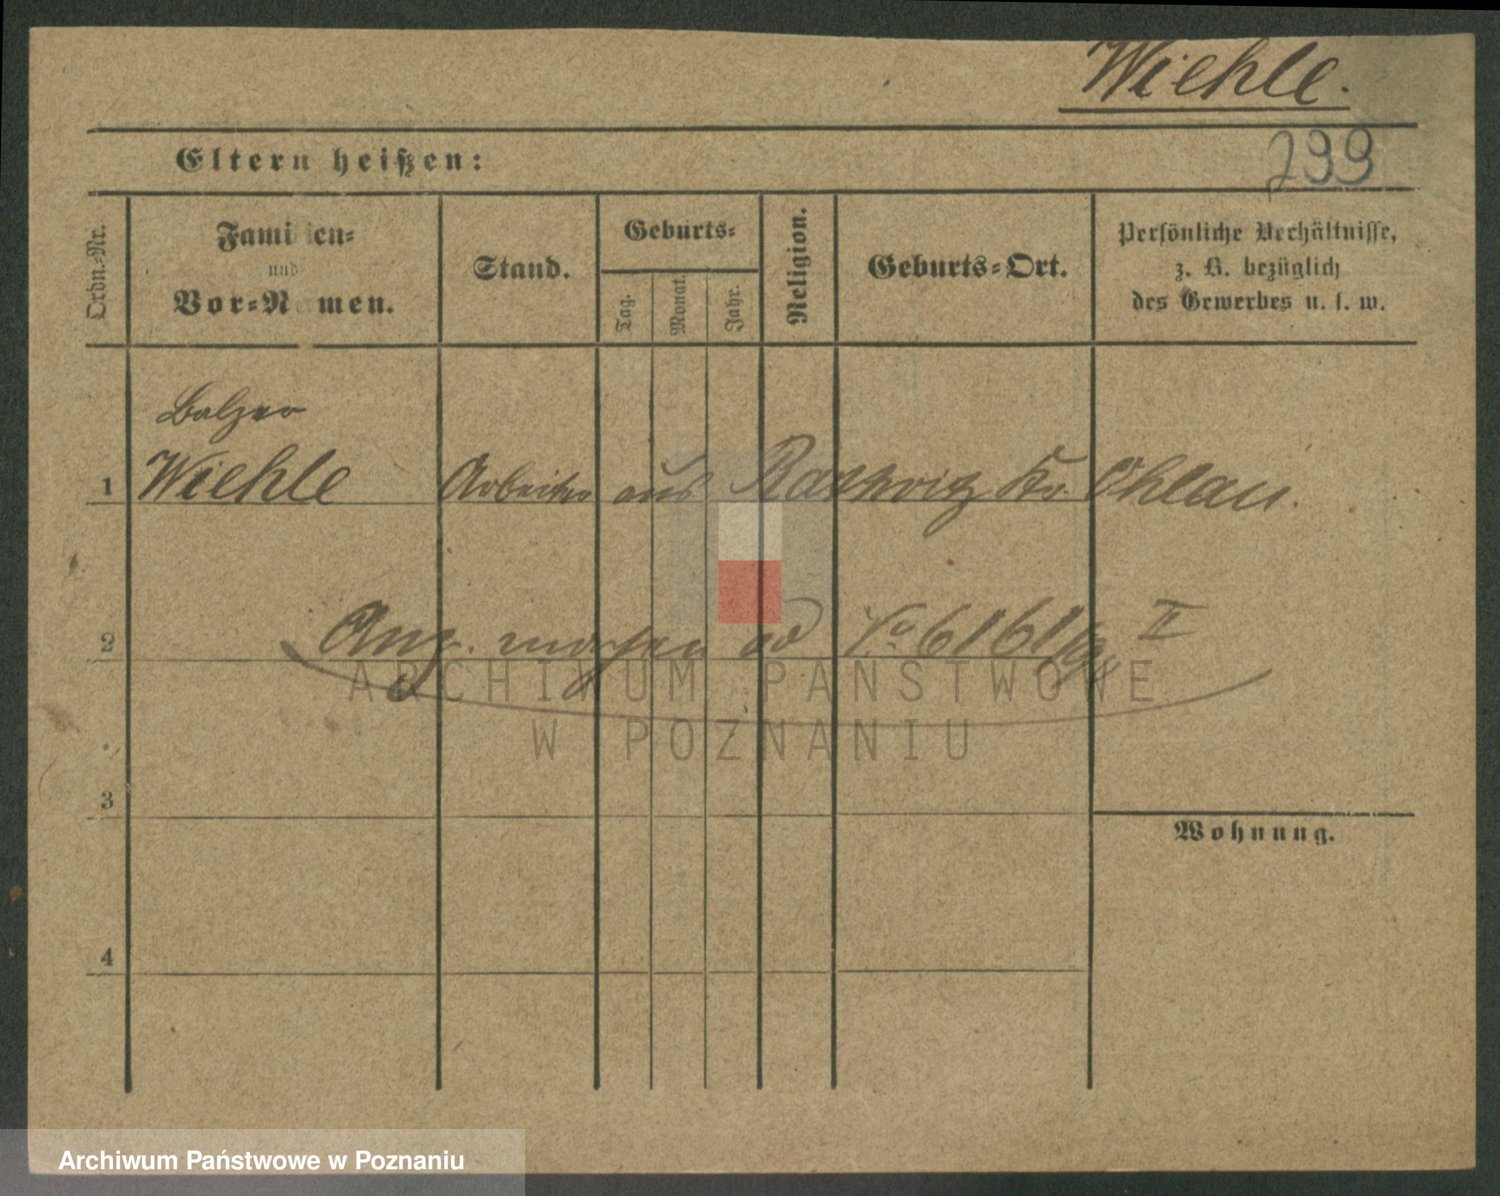 Wiehle.
Eltern heißen:
299
Ordn.-Nr.
Familien-
und
Vor-Namen.
Stand.
Geburts-
Tag.
Monat.
Jahr.
Religion.
Geburts-Ort.
Persönliche Verhältnisse,
z. B. bezüglich
des Gewerbes u. s. w.
Balzer
1 Wiehle Arbeiter aus Rattwitz Kr. Ohlau.
2 Ang. ad No 6161/9 II
ARCHIWUM PAŃSTWOWE
W POZNANIU
3
Wohnung.
4
Archiwum Państwowe w Poznaniu